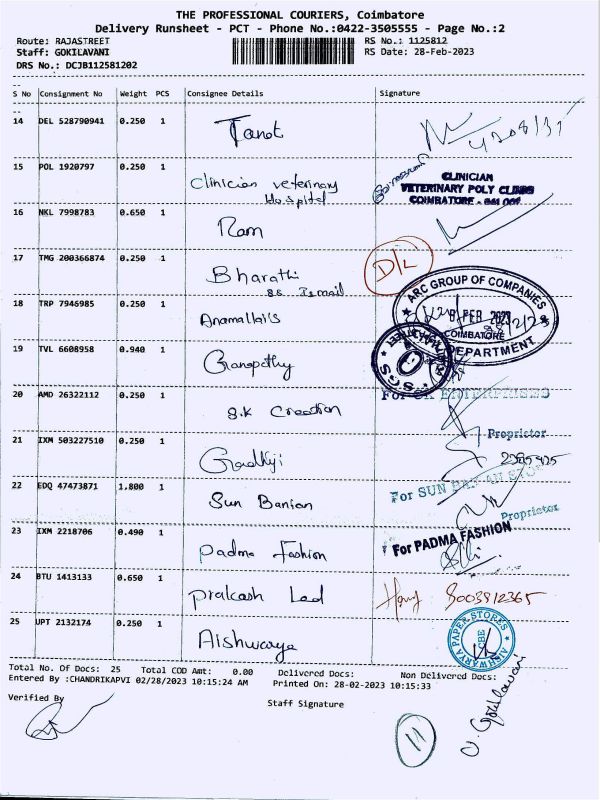 THE PROFESSIONAL COURIERS, Coimbatore
Delivery Runsheet - PCT - Phone No.:0422-3505555 - Page No.:2
Route: RAJASTREET
RS No.: 1125812
Staff: GOKILAVANI
RS Date: 28-Feb-2023
DRS No.: DCJB112581202
S No Consignment No Weight PCS Consignee Details Signature
14 DEL 528790941 0.250 1 Tanot
15 POL 1920797 0.250 1 Clinician veterinary
Hospital
CLINICIAN
VETERINARY POLY CLINIC
COIMBATORE - 641 001
16 NKL 7998783 0.650 1 Ram
17 TMG 200366874 0.250 1 Bharathi
D/L
18 TRP 7946985 0.250 1 Anamallais
ARC GROUP OF COMPANIES
28 FEB 2023
COIMBATORE
DEPARTMENT
19 TVL 6608958 0.940 1 Ganapathy
S.G.S
20 AMD 26322112 0.250 1 S.K Creation
For SK ENTERPRISES
Proprietor
21 IXM 503227510 0.250 1
22 EDQ 47473871 1.800 1 Sun Banian
For SUN
Proprietor
23 IXM 2218706 0.490 1 Padma Fashion
For PADMA FASHION
24 BTU 1413133 0.650 1 Prakash Lad
8003812365
25 UPT 2132174 0.250 1 Aishwarya
AISHWARYA PAPER STORES
CBE
Total No. Of Docs: 25 Total COD Amt: 0.00 Delivered Docs: Non Delivered Docs:
Entered By :CHANDRIKAPVI 02/28/2023 10:15:24 AM Printed On: 28-02-2023 10:15:33
Verified By
Staff Signature
11
V. Gokilavani